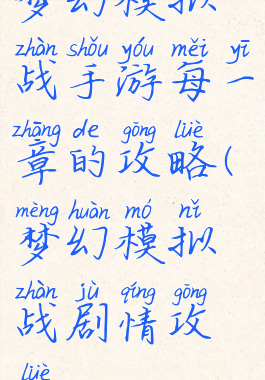 梦幻模拟
zhàn shǒu yóu měi yī
战手游每一
zhāng de gōng lüè
章的攻略(
mèng huàn mó nǐ
梦幻模拟
zhàn jù qíng gōng
战剧情攻
lüè